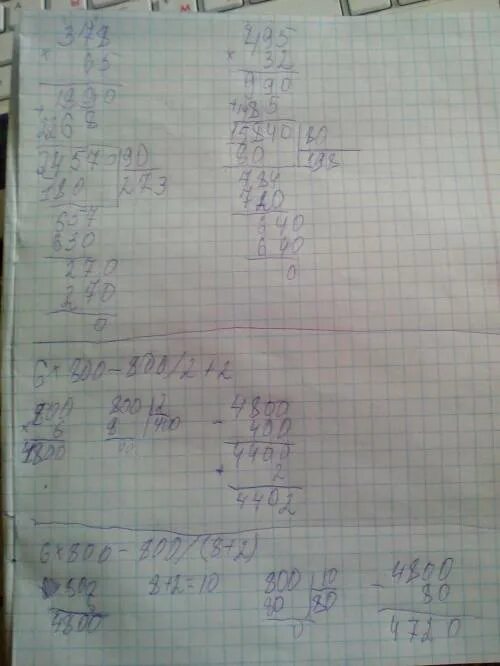 378
× 65
1890
+
2268
24570 90
180 273
657
630
270
270
0
495
× 32
990
+1485
15840 80
80 198
784
720
640
640
0
6×800-800/2+2
800
× 6
4800
800 2
8 400
00
4800
- 400
4400
+ 2
4402
6×800-800/(8+2)
4800
8+2=10
800 10
80 80
0
4800
- 80
4720